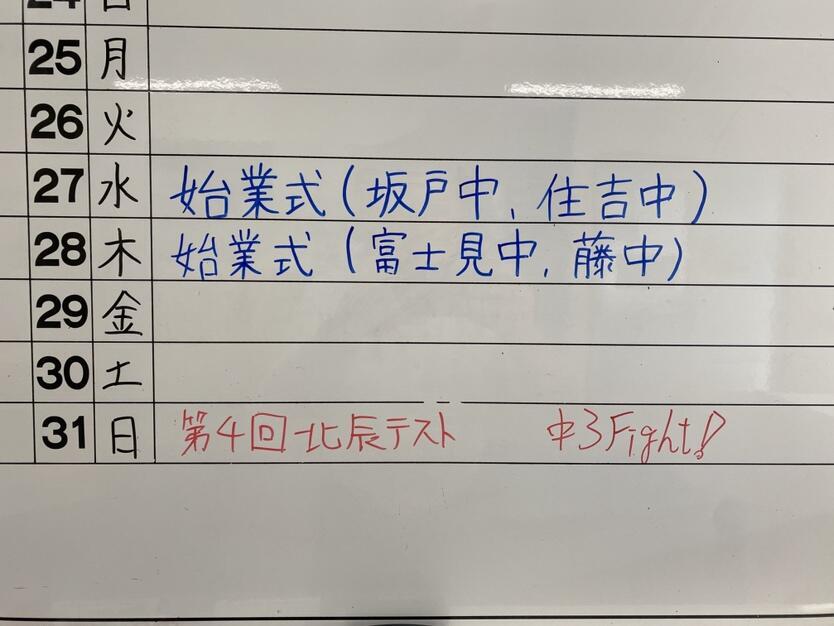 24 日
25 月
26 火
27 水 始業式(坂戸中、住吉中)
28 木 始業式(富士見中、藤中)
29 金
30 土
31 日 第4回北辰テスト 中3Fight!